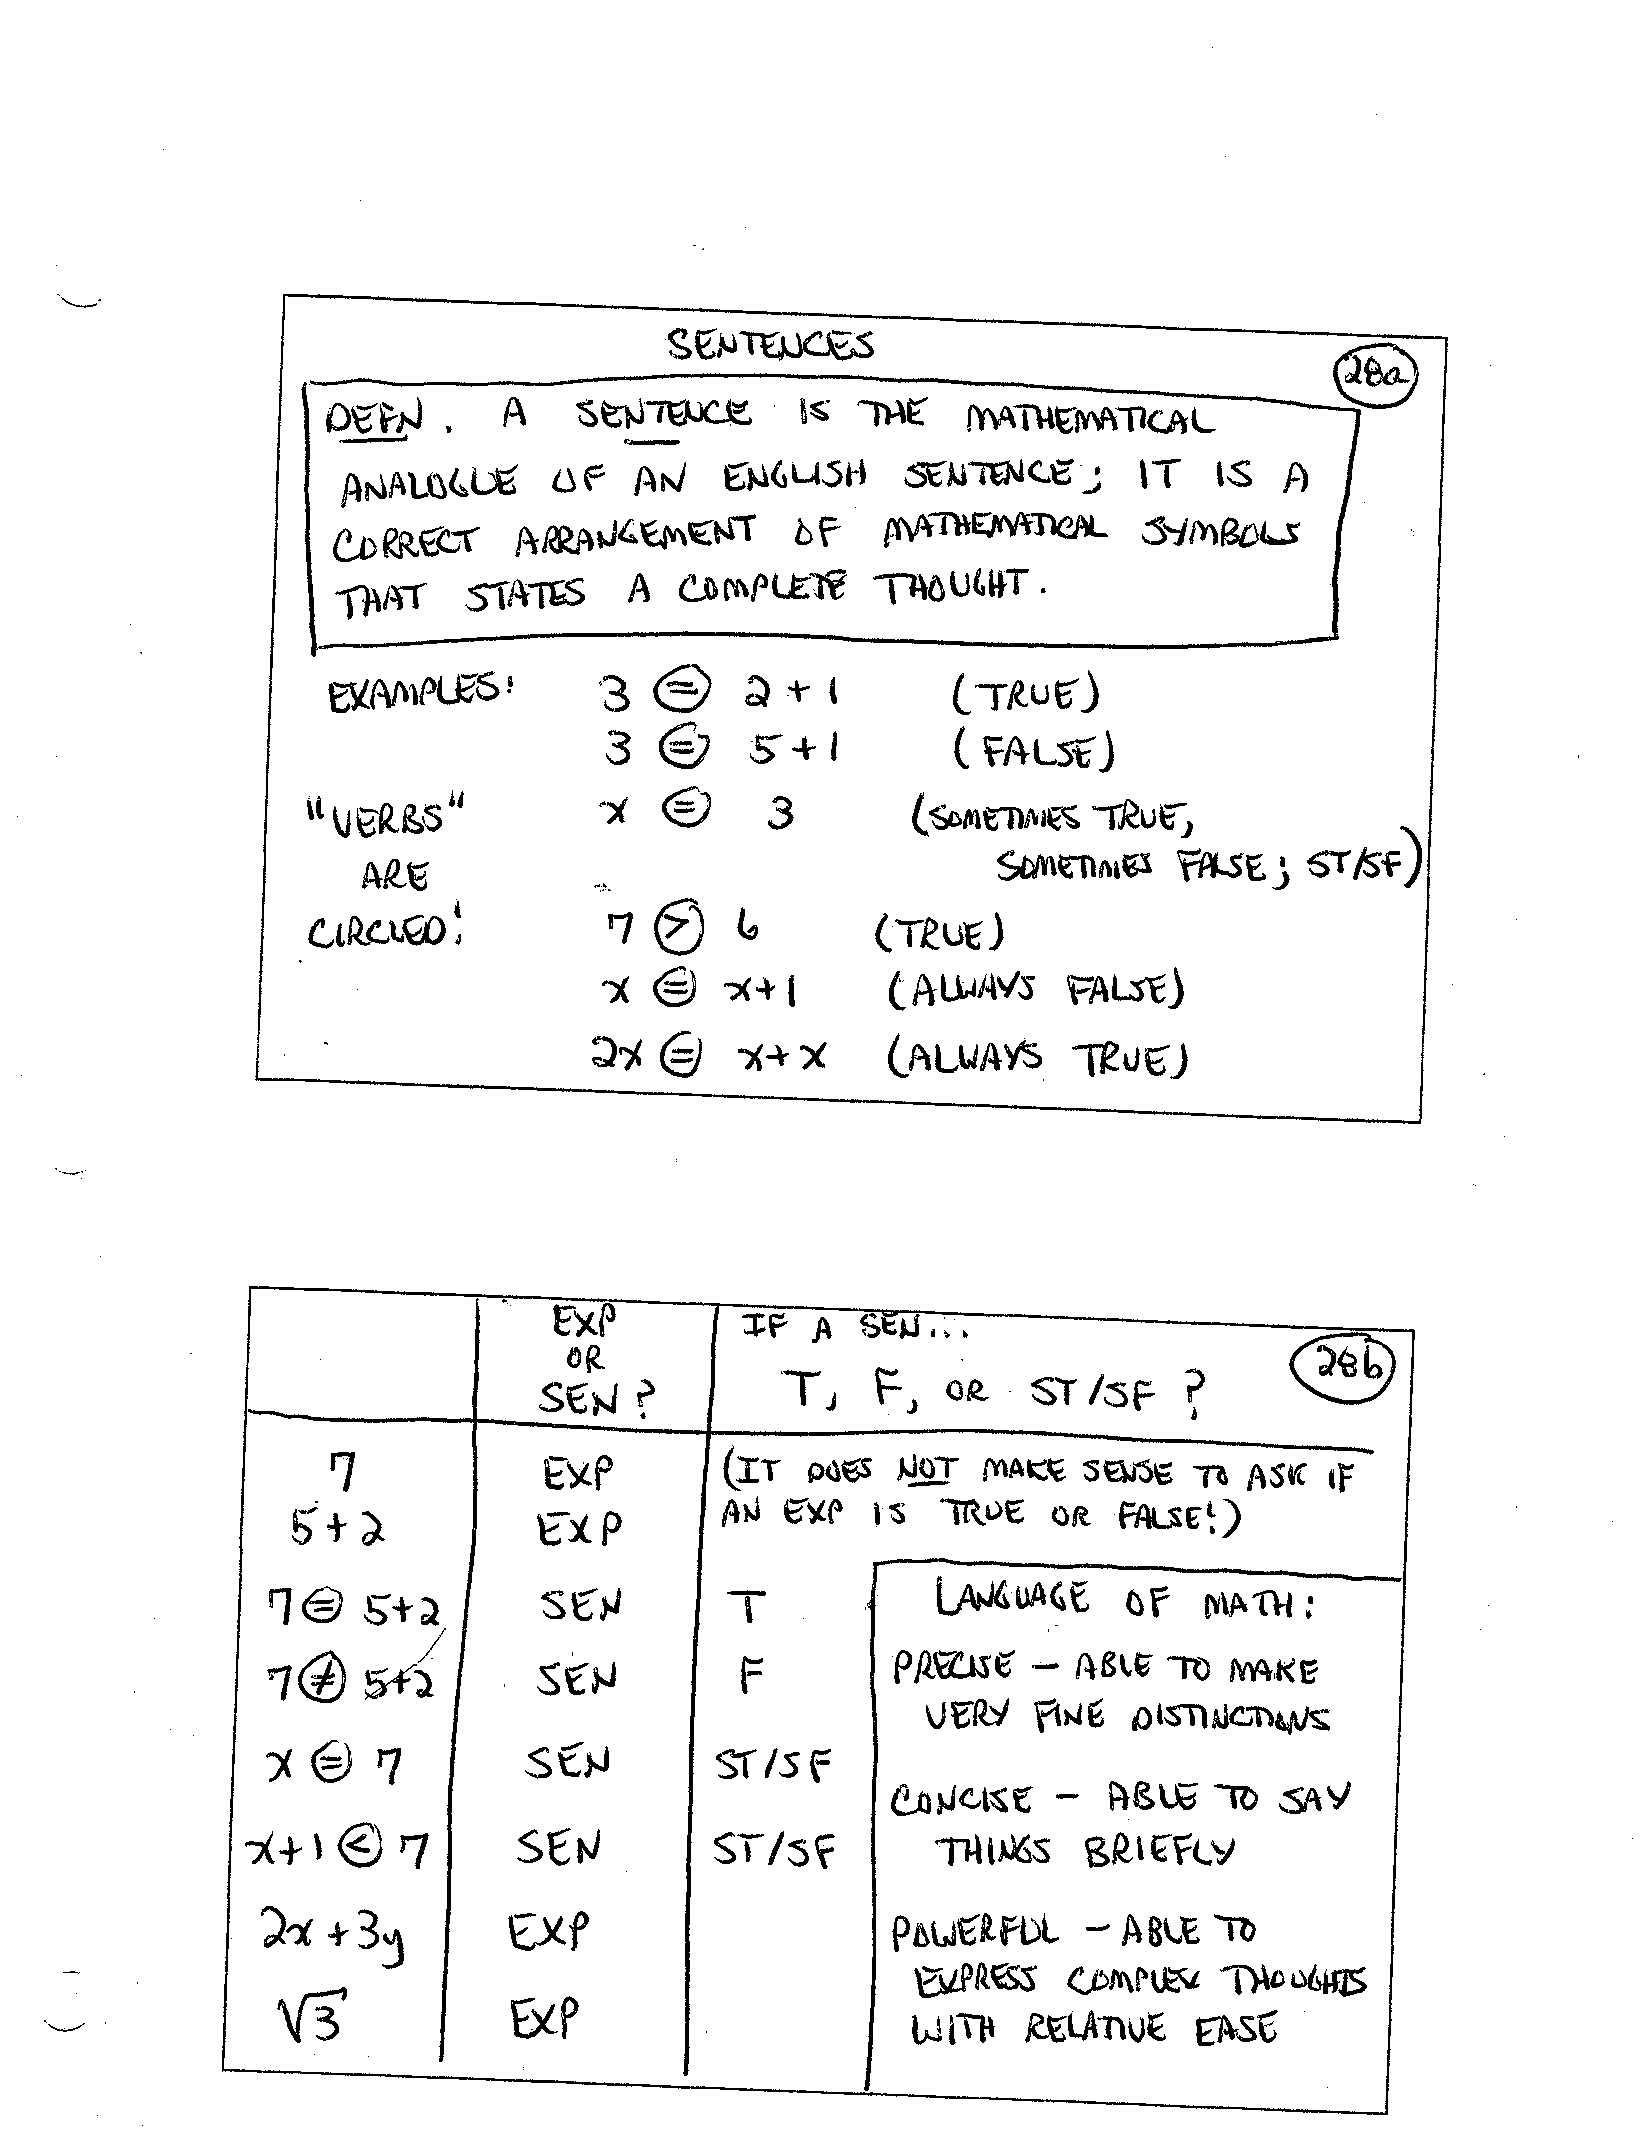 SENTENCES
28a
DEFN. A SENTENCE IS THE MATHEMATICAL
ANALOGUE OF AN ENGLISH SENTENCE; IT IS A
CORRECT ARRANGEMENT OF MATHEMATICAL SYMBOLS
THAT STATES A COMPLETE THOUGHT.
EXAMPLES: 3 = 2 + 1 (TRUE)
3 = 5 + 1 (FALSE)
"VERBS" x = 3 (SOMETIMES TRUE,
ARE SOMETIMES FALSE; ST/SF)
CIRCLED! 7 > 6 (TRUE)
x = x+1 (ALWAYS FALSE)
2x = x+x (ALWAYS TRUE)
EXP OR SEN?
IF A SEN...
T, F, OR ST/SF?
28b
7 EXP (IT DOES NOT MAKE SENSE TO ASK IF
5+2 EXP AN EXP IS TRUE OR FALSE!)
7 = 5+2 SEN T
7 ≠ 5+2 SEN F
x = 7 SEN ST/SF
x+1 < 7 SEN ST/SF
2x + 3y EXP
√3 EXP
LANGUAGE OF MATH:
PRECISE - ABLE TO MAKE
VERY FINE DISTINCTIONS
CONCISE - ABLE TO SAY
THINGS BRIEFLY
POWERFUL - ABLE TO
EXPRESS COMPLEX THOUGHTS
WITH RELATIVE EASE